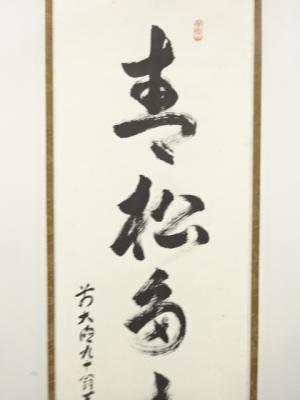 青松多
前大徳九十翁